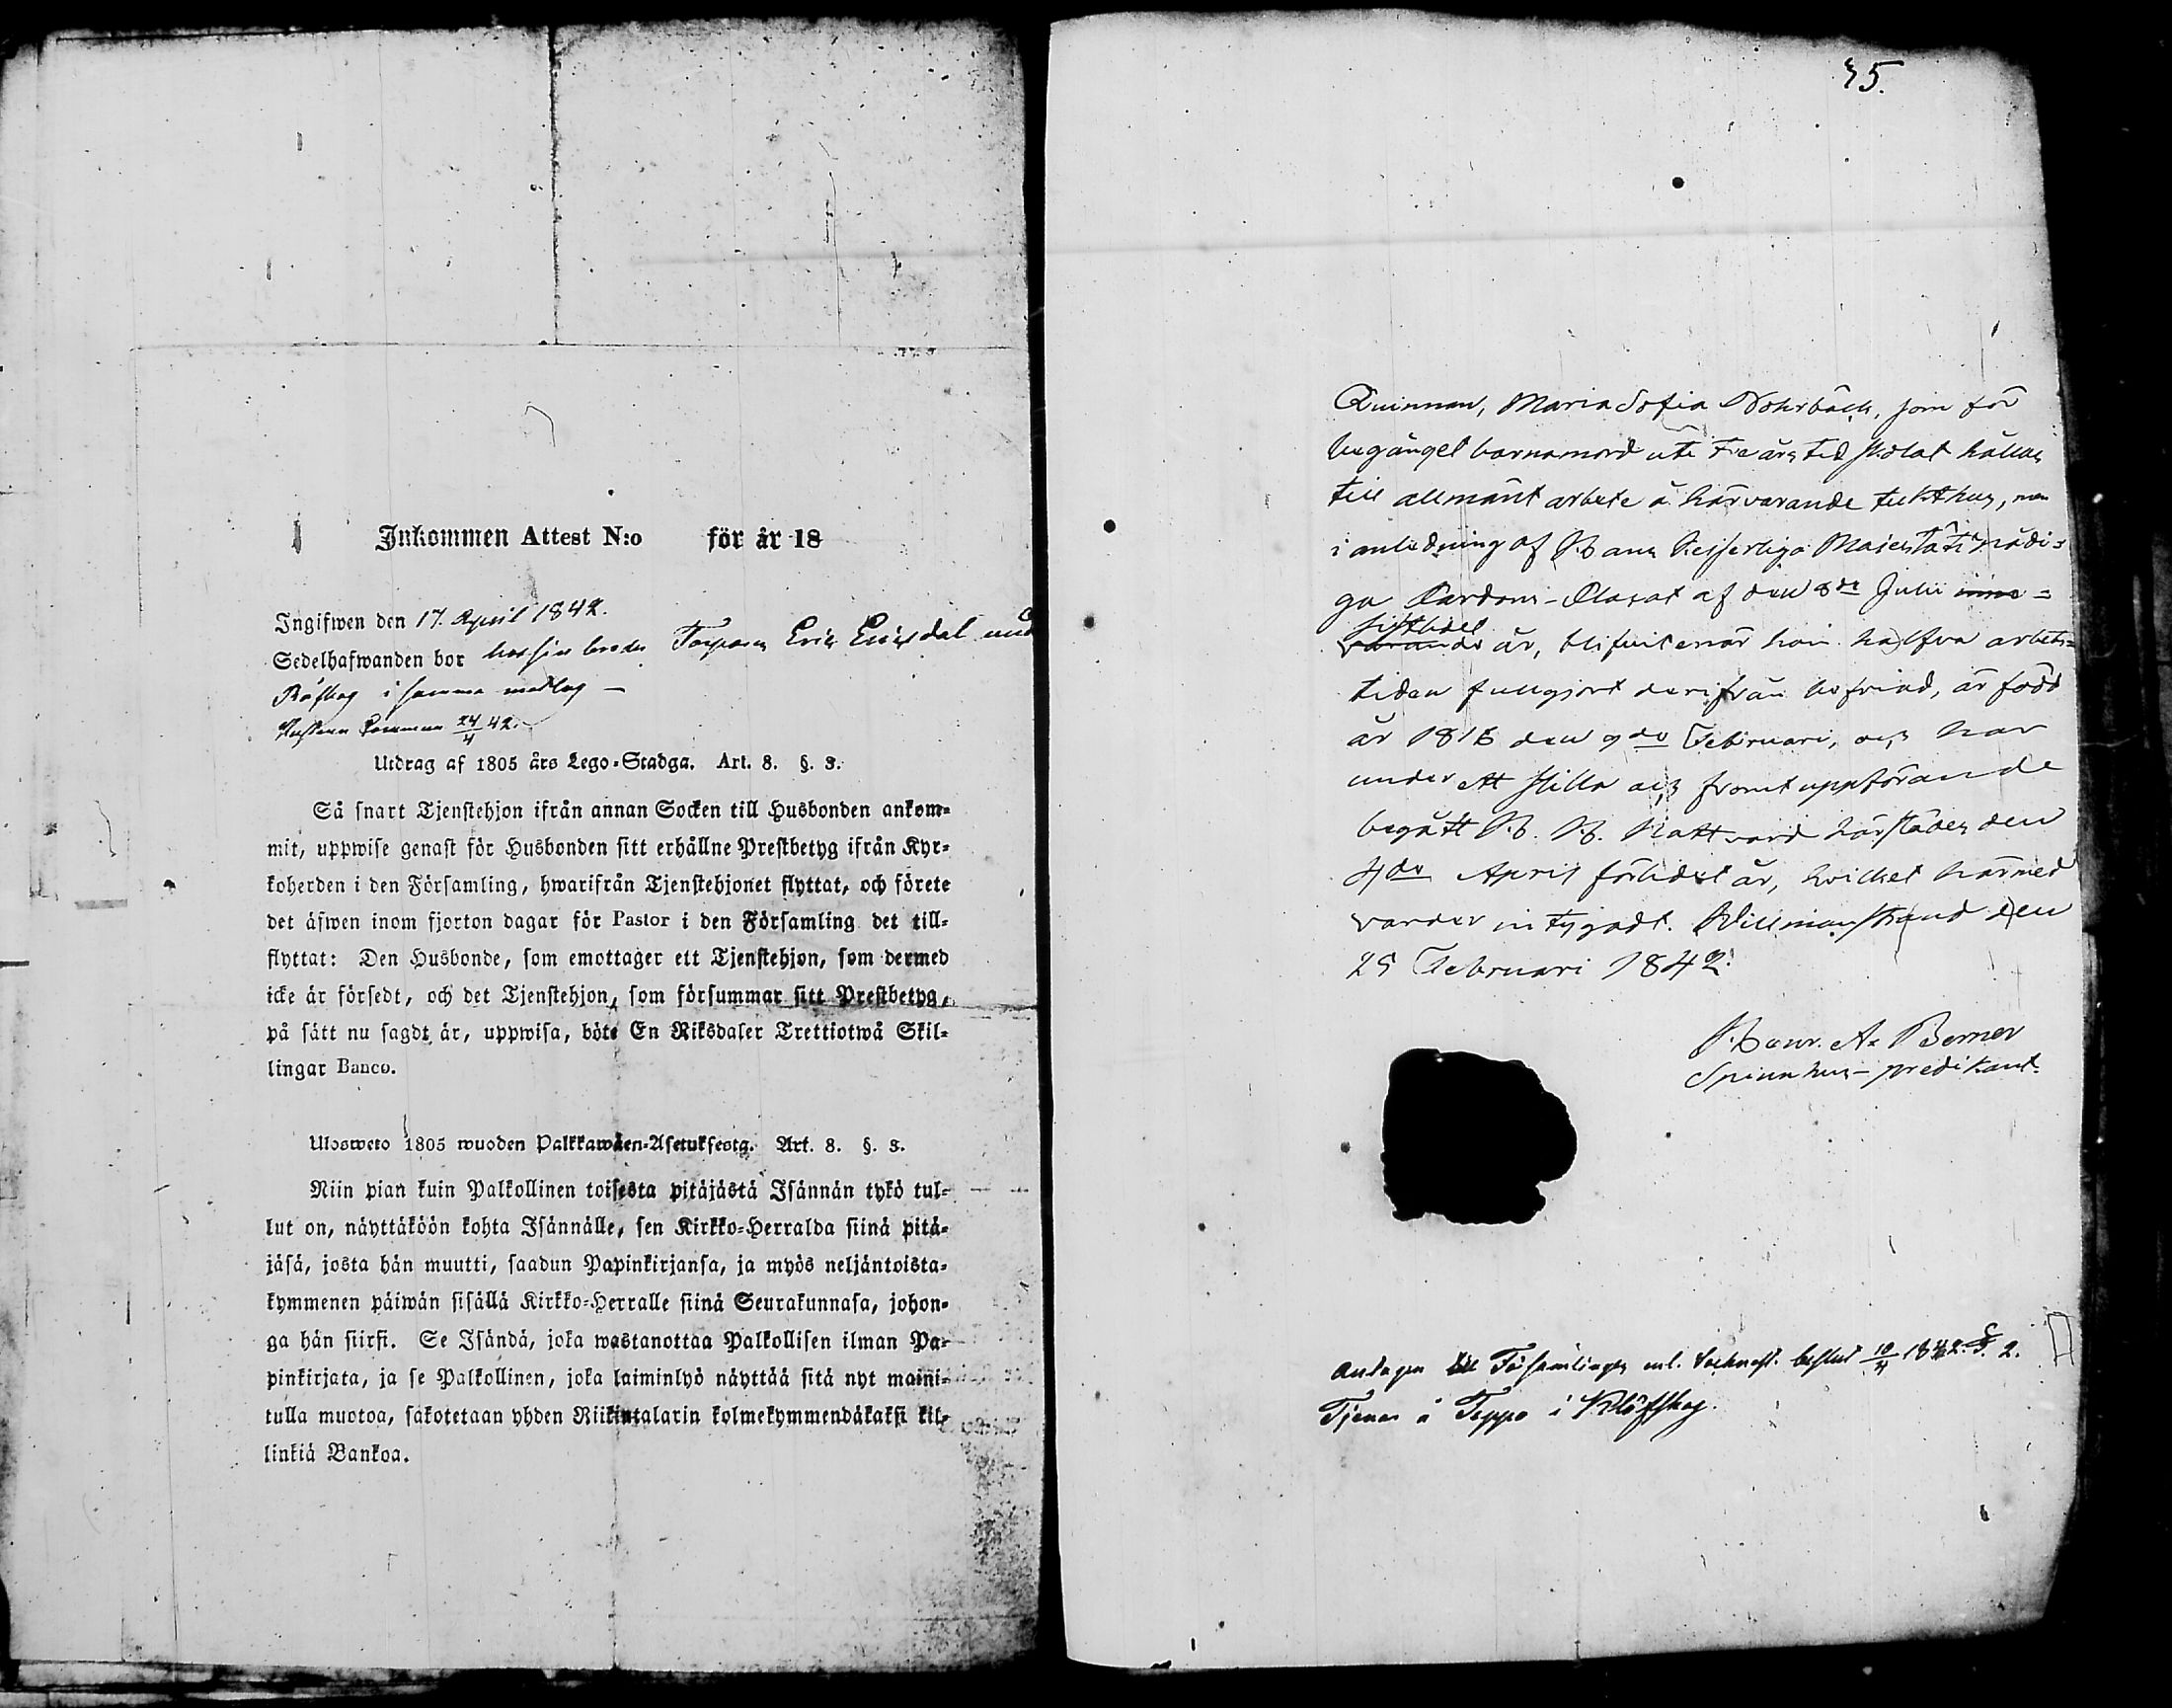 Inkommen Attest N:o för år 18
Ingifwen den 17. April 1842.
Sedelhafwanden bor hos sin broder Torparn Eric Ericsdal und
Röfskog i samma
24/4 42.
Utdrag af 1805 års Lego-Stadga. Art. 8. §. 3.
Så snart Tjenstehjon ifrån annan Socken till Husbonden ankom-
mit, uppwise genast för Husbonden sitt erhållne Prestbetyg ifrån Kyr-
koherden i den Församling, hwarifrån Tjenstehjonet flyttat, och förete
det äfwen inom fjorton dagar för Pastor i den Församling det till-
flyttat: Den Husbonde, som emottager ett Tjenstehjon, som dermed
icke är försedt, och det Tjenstehjon, som försummar sitt Prestbetyg,
på sätt nu sagdt är, uppwisa, böte En Riksdaler Trettiotwå Skil-
lingar Banco.
Ulosweto 1805 wuoden Palkkawäen-Asetuksesta. Art. 8. §. 3.
Niin pian kuin Palkollinen toisesta pitäjästä Isännän tykö tul-
lut on, näyttäköön kohta Isännälle, sen Kirkko-Herralda siinä pitä-
jäsä, josta hän muutti, saadun Papinkirjansa, ja myös neljäntoista-
kymmenen päiwän sisällä Kirkko-Herralle siinä Seurakunnasa, johon-
ga hän siirsi. Se Isändä, joka wastanottaa Palkollisen ilman Pa-
pinkirjata, ja se Palkollinen, joka laiminlyö näyttää sitä nyt maini-
tulla muotoa, sakotetaan yhden Riikintalarin kolmekymmendäkaksi kil-
linkiä Bankoa.
35.
Quinnan, Maria Sofia Nohrbäck, som för
begånget barnamord uti Tre års tid skolat hållas
till allmänt arbete å härvarande tuckthus, men
i anledning af Hans Kejserliga Majestäts nådi-
ga Pardons-Placat af den 8de Julii inne-
sistlidet
varande år, blifvit enär hon halfva arbets-
tiden fullgjort derifrån befriad, är född
år 1816 den 9de Februari, och har
under ett stilla och fromt uppförande
begått H. H. Nattvard härstädes den
4de April förlidet år, hvilket härmed
varder intygadt. Willmanstrand den
25 Februari 1842.
Henr. A. Berner
Spinnhus-predikant.
Antagen till Församlingen enl. Socknest. beslut 10/4 1842. §. 2.
Tjenar å Teppo i Klöfskog.